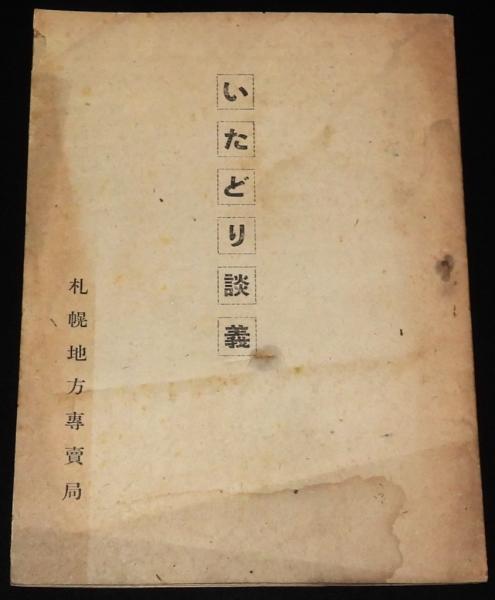 いたどり談義
札幌地方專賣局